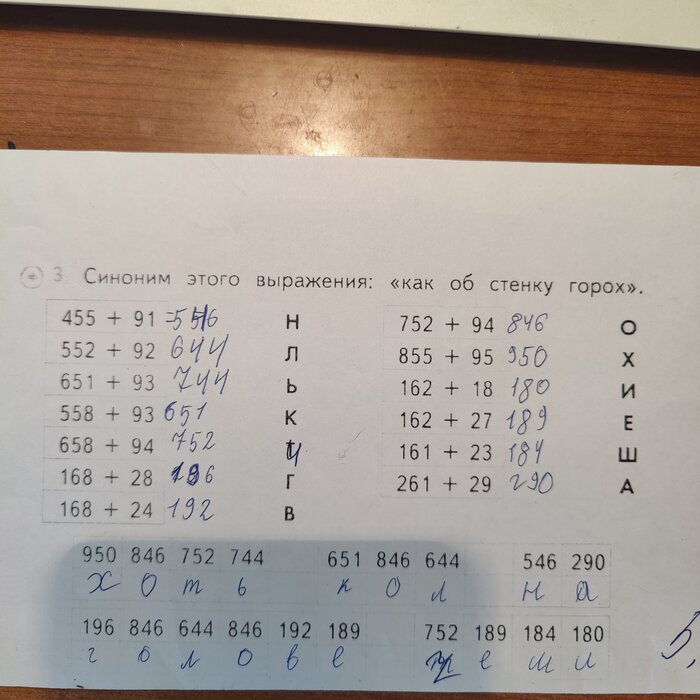 3 Синоним этого выражения: «как об стенку горох».
455 + 91 =546 Н 752 + 94 846 О
552 + 92 644 Л 855 + 95 950 Х
651 + 93 744 Ь 162 + 18 180 И
558 + 93 651 К 162 + 27 189 Е
658 + 94 752 161 + 23 184 Ш
168 + 28 196 Г 261 + 29 290 А
168 + 24 192 В
950 846 752 744 651 846 644 546 290
Х о т ь к о л н а
196 846 644 846 192 189 752 189 184 180
г о л о в е е ш и